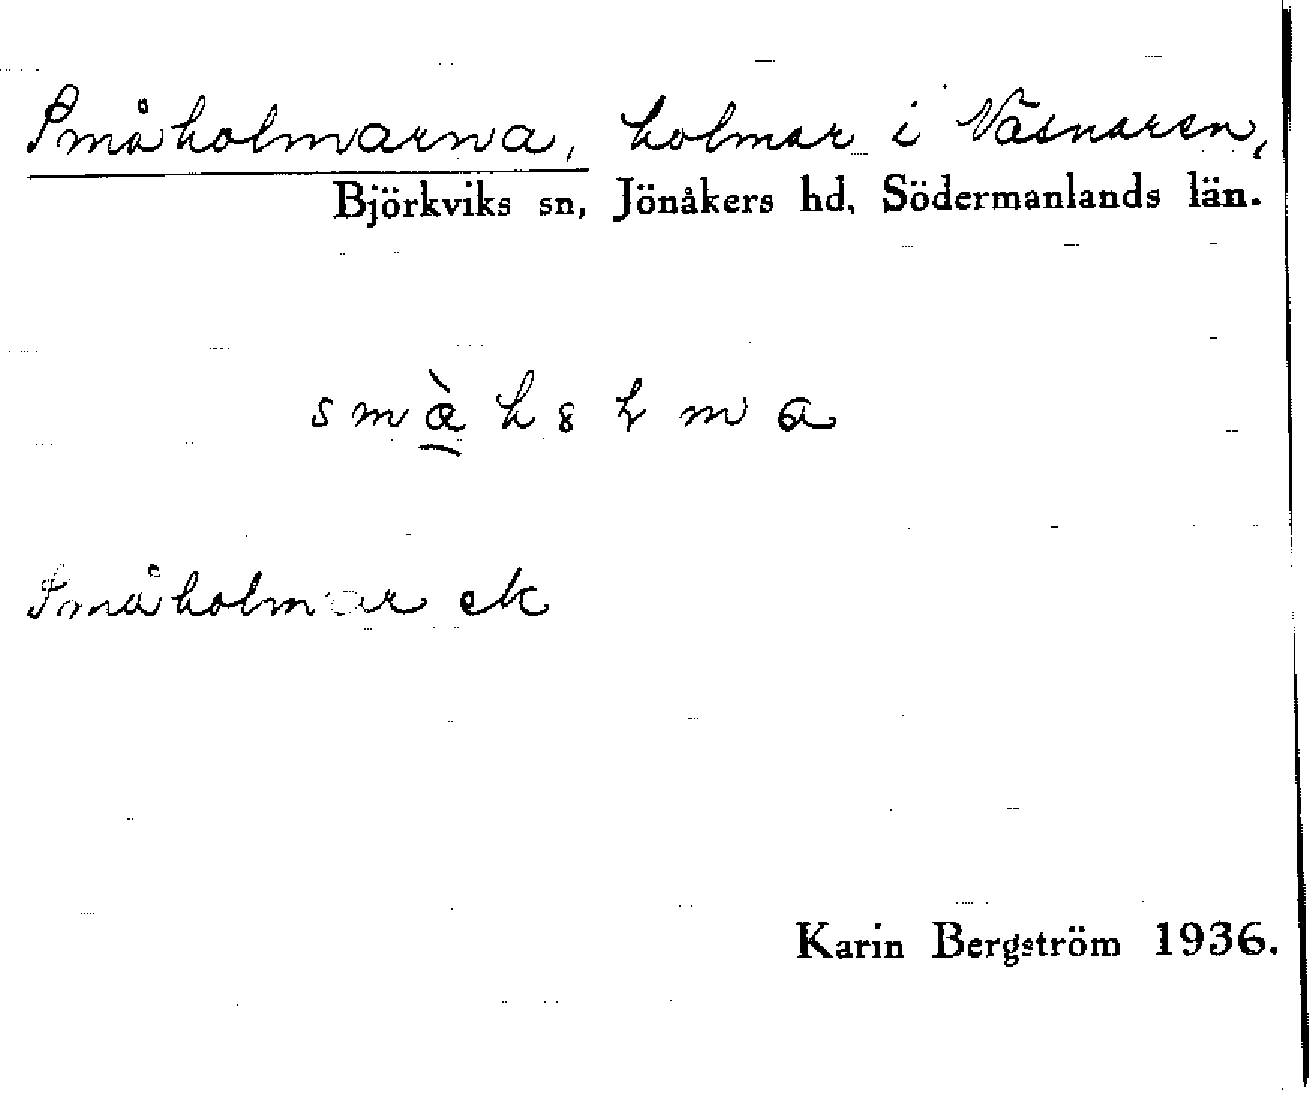 Småholmarna, holmar i Väsnaren,
Björkviks sn, Jönåkers hd, Södermanlands län.
Småholmar ek
Karin Bergström 1936.